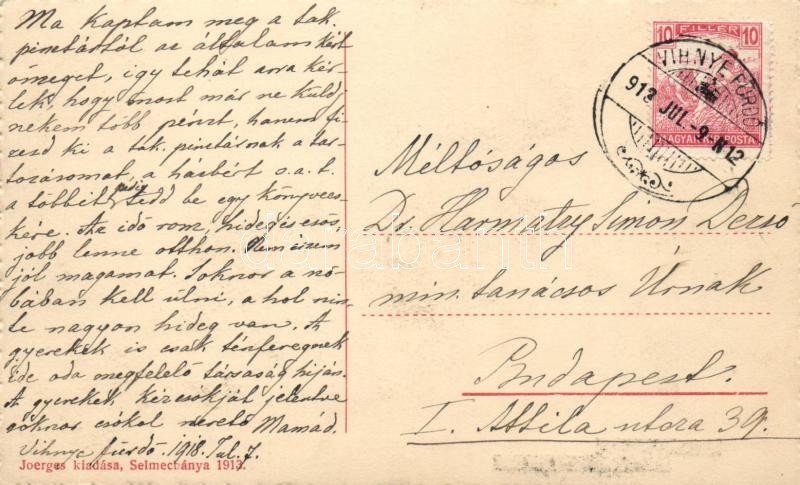 Ma kaptam meg a tak.
pénztártól az általam kért
összeget, így tehát arra kér-
lek, hogy most már ne küldj
nekem több pénzt, hanem fi-
zesd ki a tak. pénztárnak a tar-
tozásomat, a házbért s.a.t.
a többit pedig tedd be egy könyvecs-
kére. Az idő rossz, hideg és esős,
jobb lenne otthon. Nem érzem
jól magamat. Sokszor a szo-
bában kell ülni, a hol
nagyon hideg van. A
gyerekek is csak ténferegnek
ide oda megfelelő társaság híján.
A gyerekek kézcsókját jelentve
csókol szerető Mamád.
Vihnye fürdő. 1918. Jul. 7.
Joerges kiadása, Selmecbánya 1913.
10 FILLÉR 10
MAGYAR KIR. POSTA
VIHNYE FÜRDŐ
913 JUL.-9. N12
Méltóságos
Dr. Harmatzy Simon Dezső
min. tanácsos Úrnak
Budapest.
I. Attila utcza 39.
darabanth